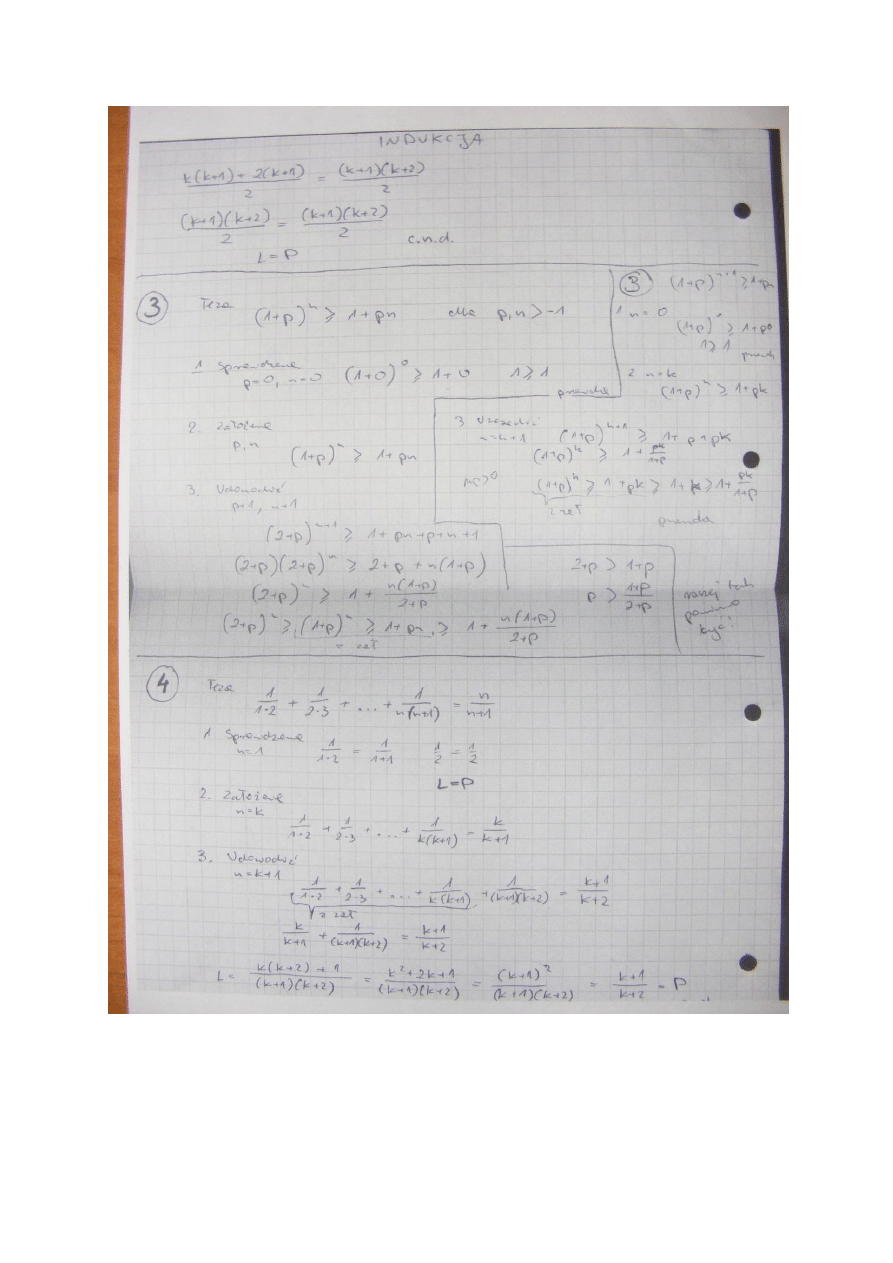 INDUKCJA
k(k+1) + 2(k+1) / 2 = (k+1)(k+2) / 2
(k+1)(k+2) / 2 = (k+1)(k+2) / 2
c.n.d.
L = P
3 Teza (1+p)^n ≥ 1+pn dla p,n > -1
1 Sprawdzenie
p=0, n=0 (1+0)^0 ≥ 1+0 1 ≥ 1
prawda
2. Założenie
p, n (1+p)^n ≥ 1+pn
3. Udowodnić
p+1, n+1
(2+p)^n+1 ≥ 1+pn+p+n+1
(2+p)(2+p)^n ≥ 2+p+n(1+p)
(2+p)^n ≥ 1 + n(1+p) / 2+p
(2+p)^n ≥ (1+p)^n ≥ 1+pn ≥ 1 + n(1+p) / 2+p
z zał
3 (1+p)^n+1 ≥ 1+pn
1 n=0
(1+p)^0 ≥ 1+p0
1 ≥ 1
prawda
2 n=k
(1+p)^k ≥ 1+pk
3
n=k+1 (1+p)^k+1 ≥ 1+p+pk
(1+p)^k ≥ 1 + pk / 1+p
(1+p)^k ≥ 1+pk ≥ 1+k ≥ 1 + pk / 1+p
z zał
prawda
2+p > 1+p
p > 1+p / 2+p
raczej tak
powinno
być!
4 Teza 1 / 1·2 + 1 / 2·3 + ... + 1 / n(n+1) = n / n+1
1 Sprawdzenie
n=1 1 / 1·2 = 1 / 1+1 1 / 2 = 1 / 2
L = P
2. Założenie
n=k
1 / 1·2 + 1 / 2·3 + ... + 1 / k(k+1) = k / k+1
3. Udowodnić
n=k+1
1 / 1·2 + 1 / 2·3 + ... + 1 / k(k+1) + 1 / (k+1)(k+2) = k+1 / k+2
z zał
k / k+1 + 1 / (k+1)(k+2) = k+1 / k+2
L = k(k+2) + 1 / (k+1)(k+2) = k²+2k+1 / (k+1)(k+2) = (k+1)² / (k+1)(k+2) = k+1 / k+2 = P